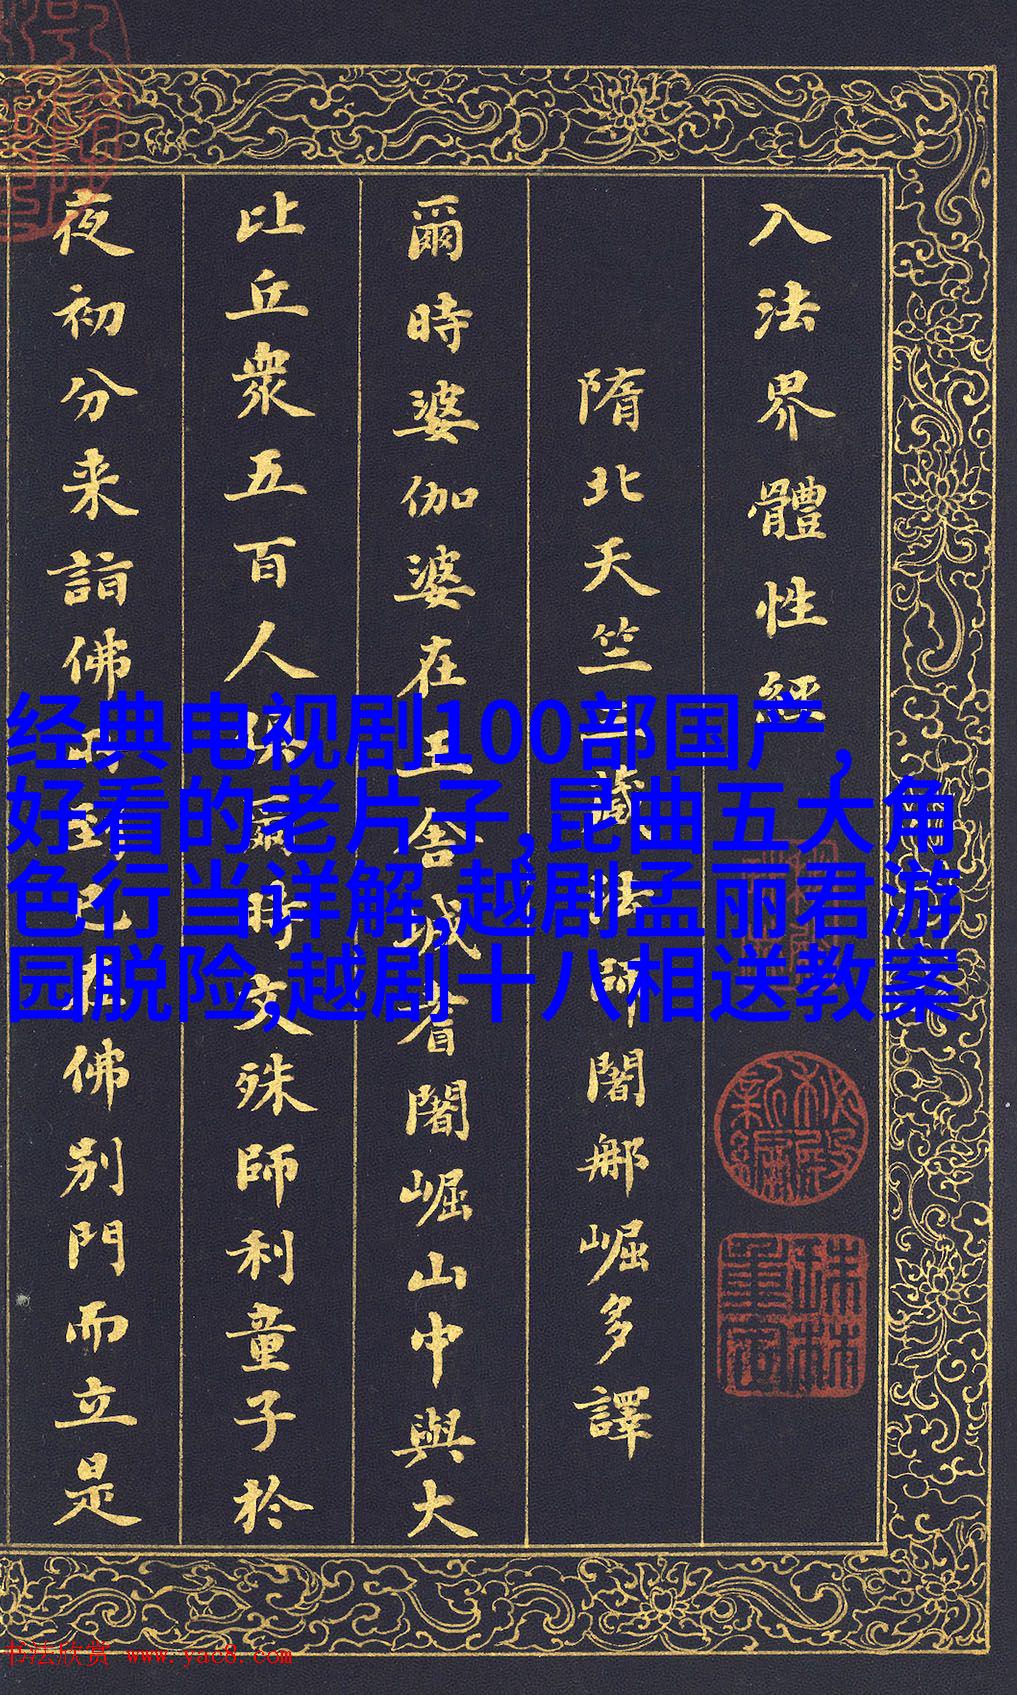 入法界體性經
隋北天竺三藏法師闍那崛多譯
爾時婆伽婆在王舍城耆闍崛山中與大
比丘衆五百人俱爾時文殊師利童子於
夜初分来詣佛所到已在佛別門而立是
经典电视剧100部国产,
好看的老片子,昆曲五大角
色行当详解,越剧孟丽君游
园脱险,越剧十八相送教案
秘殿新編
珠林重定
书法欣赏 www.yac8.com